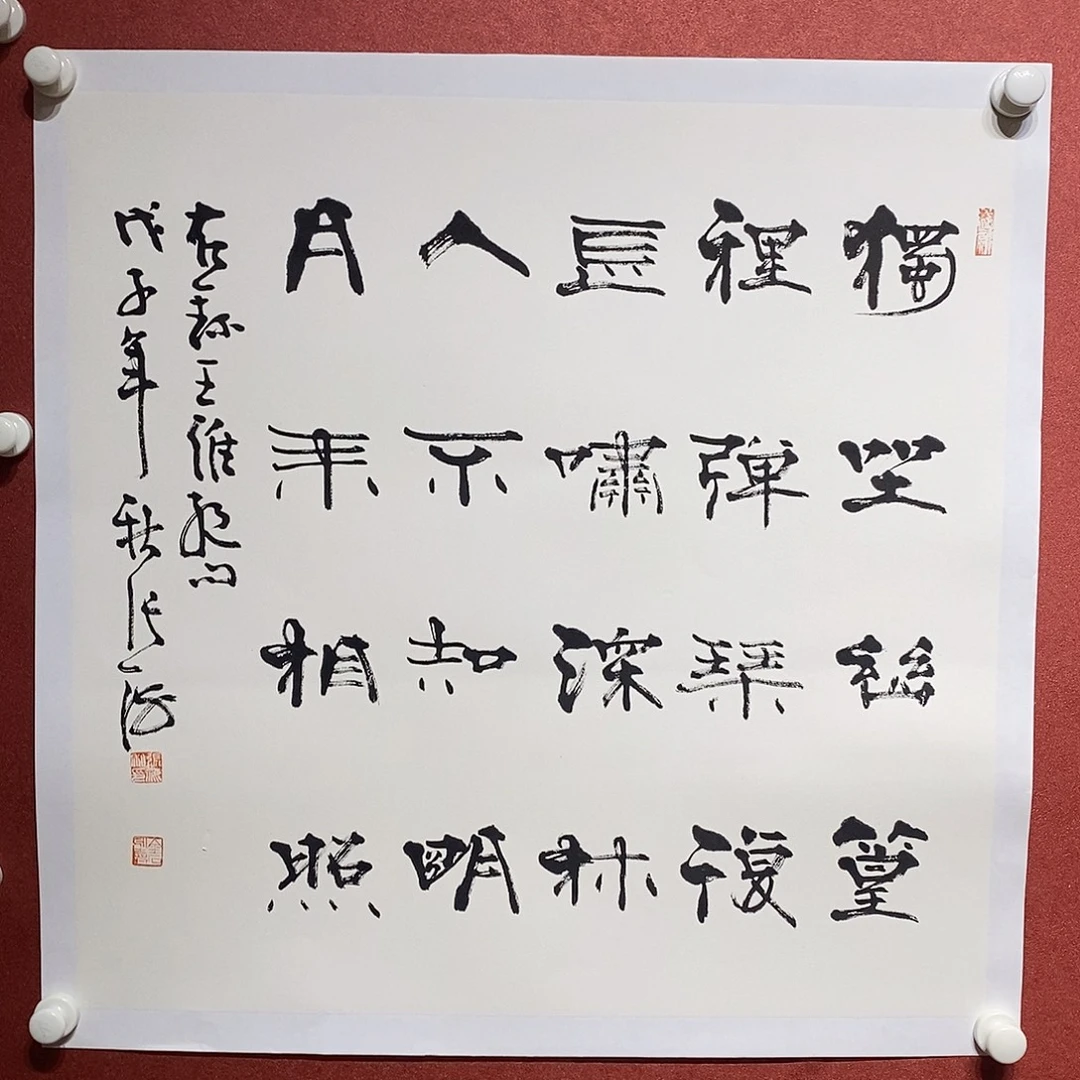 獨坐幽篁
裡彈琴復
長嘯深林
人不知明
月来相照
右王維
戊子年秋張海